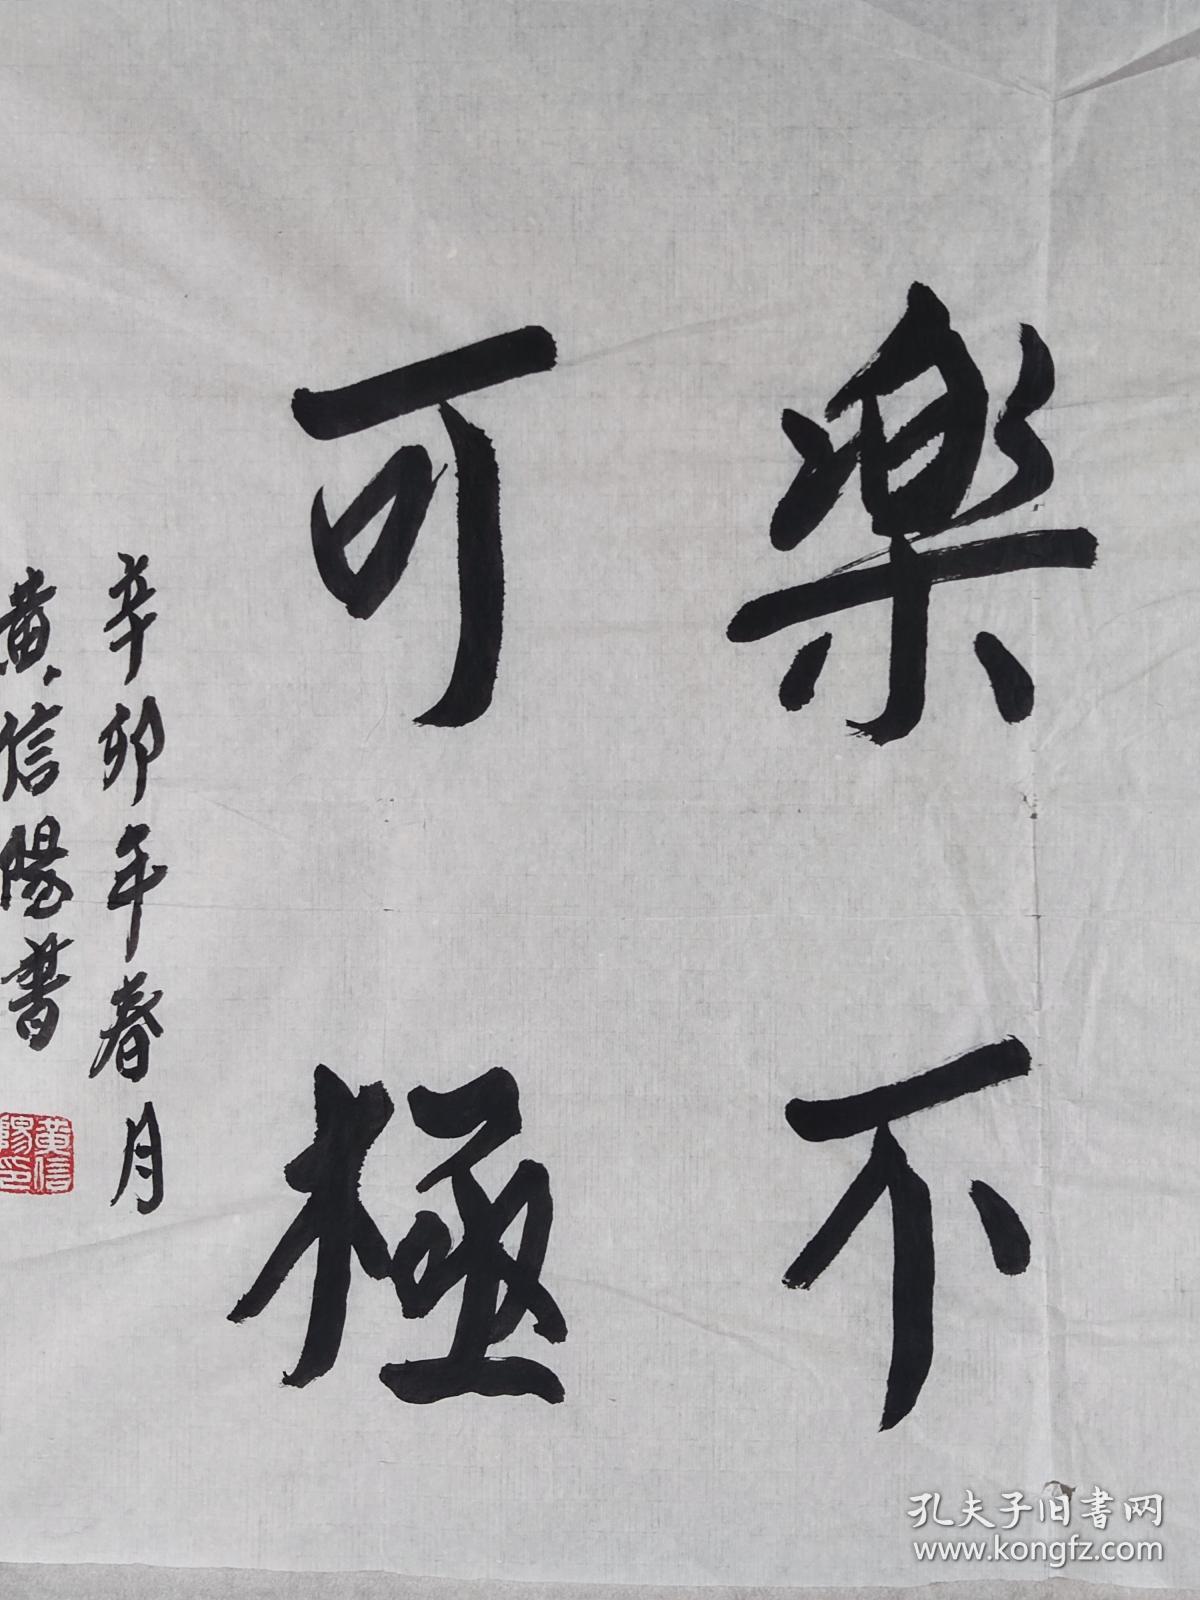 樂不
可極
辛卯年春月
黄信陽書
黄信
陽印
孔夫子旧书网
www.kongfz.com